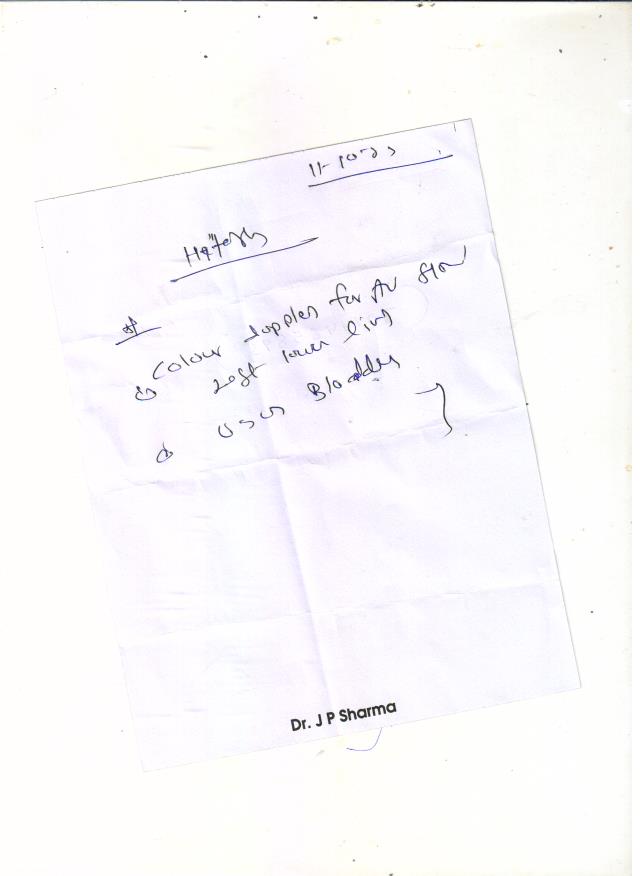 11-10-23
Hitesh
Colour doppler for AV flow
① left lower limb
② USG Bladder
Dr. J P Sharma